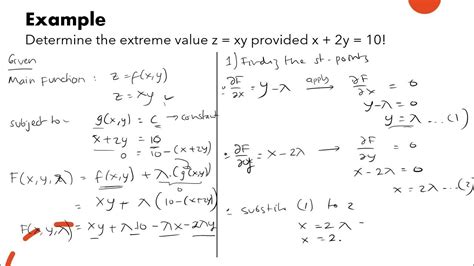 Example
Determine the extreme value z = xy provided x + 2y = 10!
Given
Main Function : z = f(x,y)
z = xy
subject to- g(x,y) = c → constant
x+2y = 10
0 = 10-(x+2y)
F(x,y,λ) = f(x,y) + λ.(g(x,y))
= xy + λ(10-(x+2y))
F(x,y,λ) = xy + λ10 - λx - 2λy
1) Finding the st-points
∂F/∂x = y-λ apply → ∂F/∂x = 0
y-λ = 0
y = λ ...(1)
∂F/∂y = x-2λ → ∂F/∂y = 0
x-2λ = 0
x = 2λ ...(2)
substitute (1) to 2
x = 2λ -
x = 2.